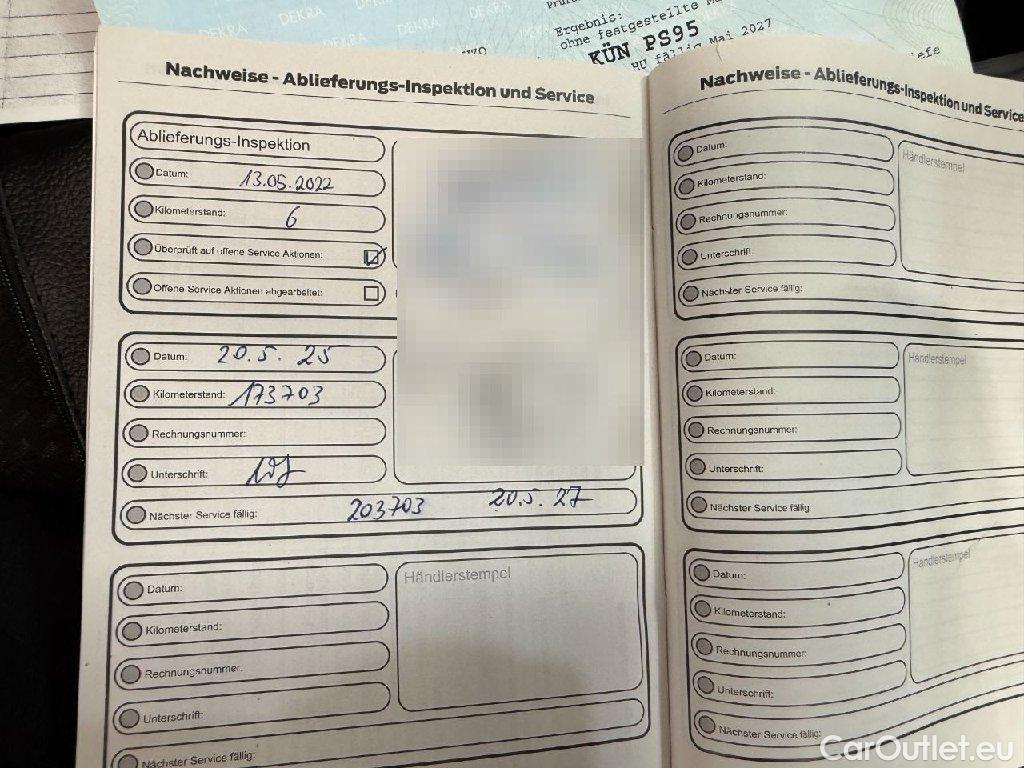 DEKRA DEKRA
DEKRA DEKRA
Ergebnis:
ohne festgestellte
KÜN PS95
HU fällig Mai 2027
Nachweise - Ablieferungs-Inspektion und Service
Ablieferungs-Inspektion
Datum: 13.05.2022
Kilometerstand: 6
Überprüft auf offene Service Aktionen:
Offene Service Aktionen abgearbeitet:
Datum: 20.5. 25
Kilometerstand: 173703
Rechnungsnummer:
Unterschrift:
Nächster Service fällig: 203703 20.5. 27
Datum:
Händlerstempel
Kilometerstand:
Rechnungsnummer:
Unterschrift:
Nächster Service fällig:
Nachweise - Ablieferungs-Inspektion und Service
Datum:
Händlerstempel
Kilometerstand:
Rechnungsnummer:
Unterschrift:
Nächster Service fällig:
Datum:
Händlerstempel
Kilometerstand:
Rechnungsnummer:
Unterschrift:
Nächster Service fällig:
Datum:
Händlerstempel
Kilometerstand:
Rechnungsnummer:
Unterschrift:
Nächster Service fällig:
CarOutlet.eu